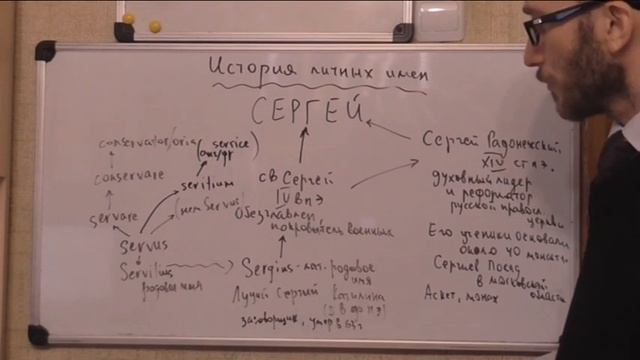 История личных имен
СЕРГЕЙ
conservator/oria
(service
conservare
seritium
servare
(нем Servus)
Servus
Servilius
родовое имя
св Сергей
IV в н э
Обезглавлен
покровитель военных
Sergius - лат. родовое
имя
Луций Сергий Катилина
(I в до н э)
заговорщик, умер в 63 г
Сергей Радонежский
XIV ст н э.
духовный лидер
и реформатор
русской правосл.
церкви
Его ученики основали
около 40 монаст
Сергиев Посад
в московской
области
Аскет, монах